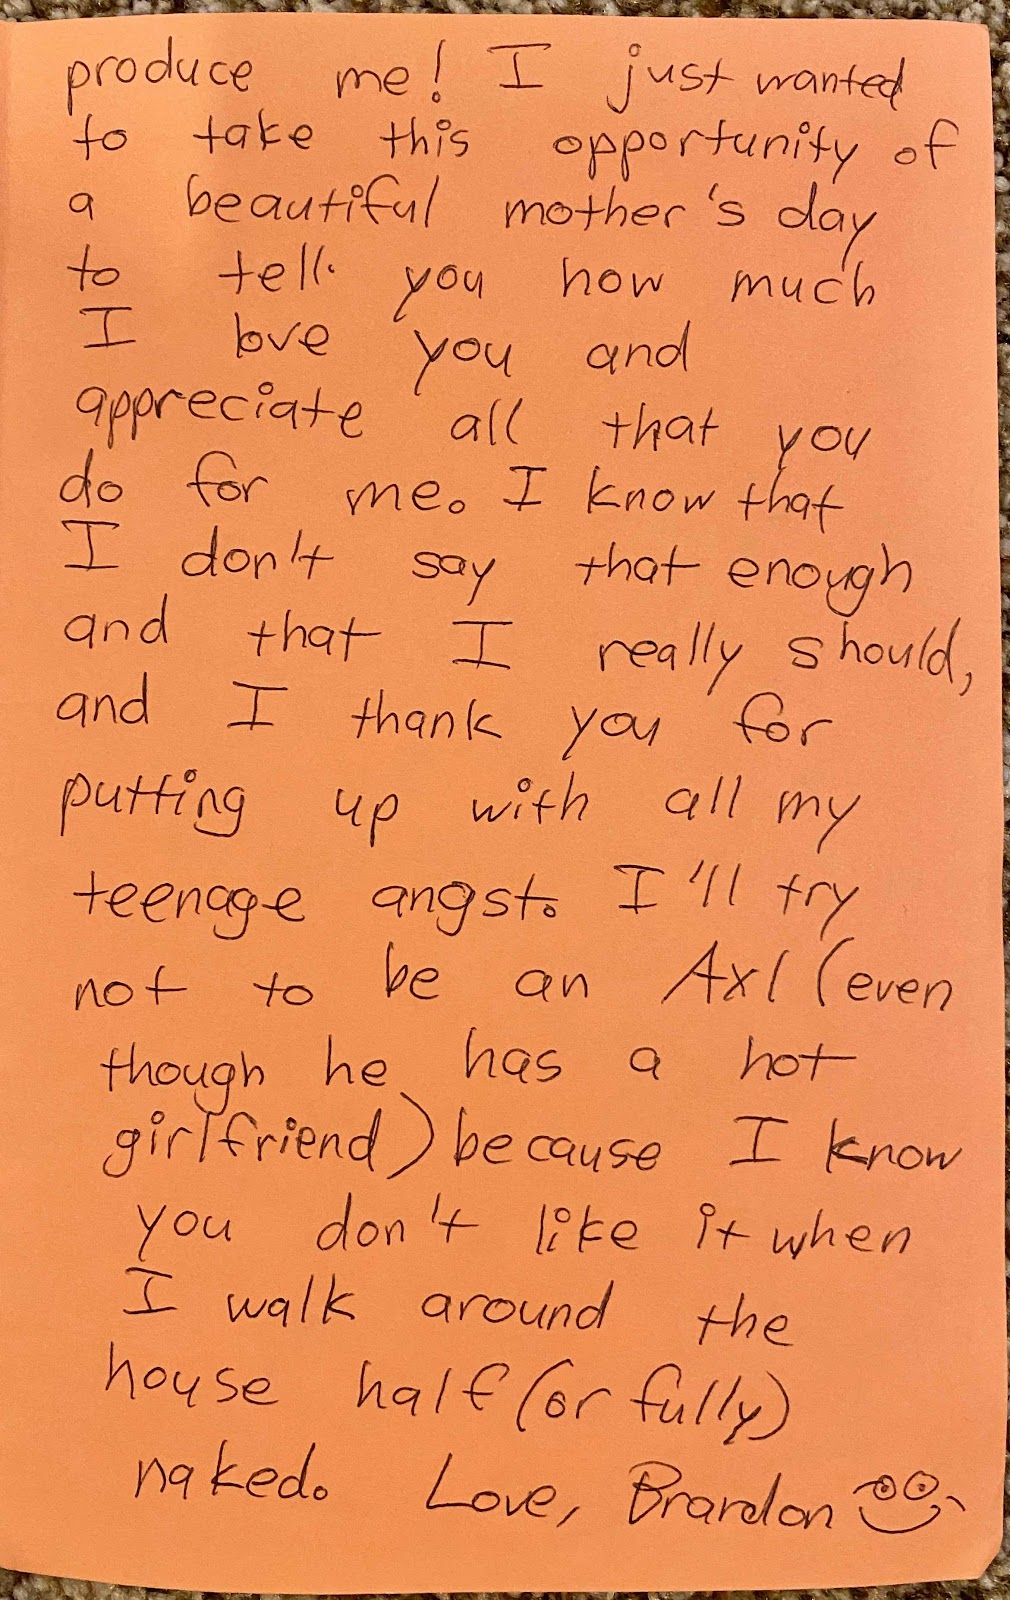 produce me! I just wanted
to take this opportunity of
a beautiful mother's day
to tell you how much
I love you and
appreciate all that you
do for me. I know that
I don't say that enough
and that I really should,
and I thank you for
putting up with all my
teenage angst. I'll try
not to be an Axl (even
though he has a hot
girlfriend) because I know
you don't like it when
I walk around the
house half (or fully)
naked. Love, Brandon